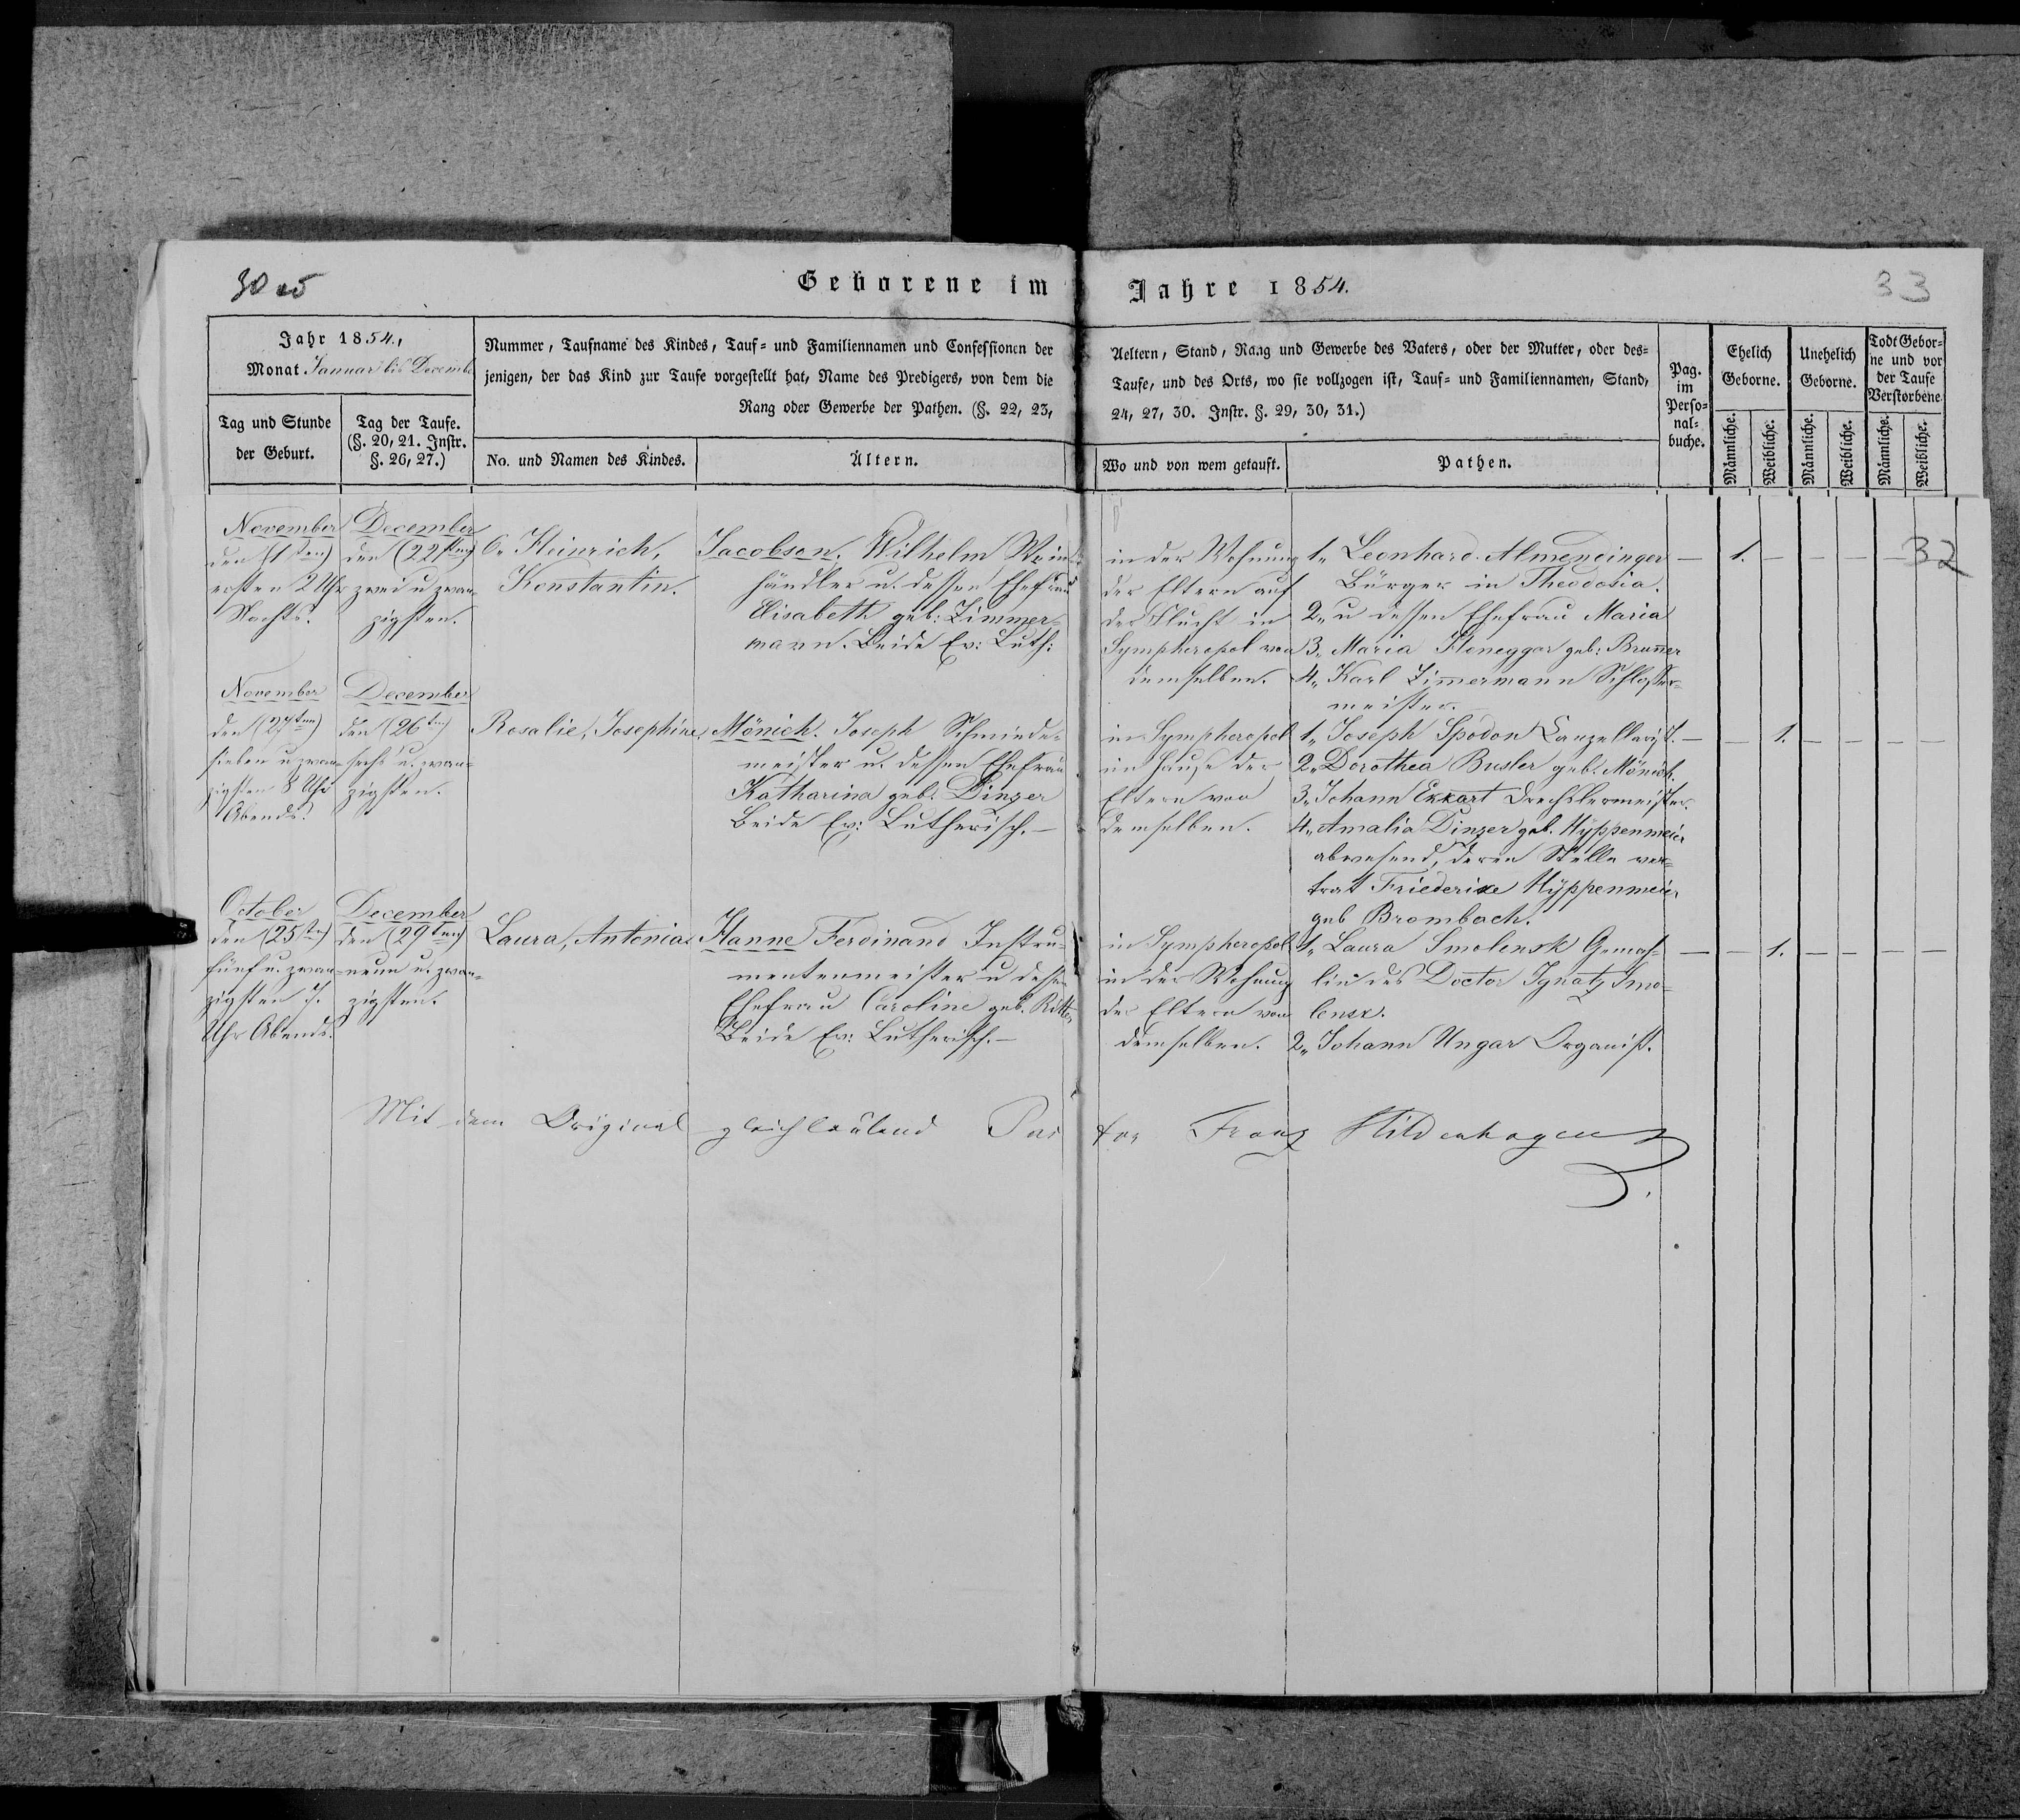 30 
Geborene im Jahre 1854.
33
Jahr 1854.,
Monat Januar bis Decembe
Nummer, Taufname des Kindes, Tauf- und Familiennamen und Confessionen der
jenigen, der das Kind zur Taufe vorgestellt hat, Name des Predigers, von dem die
Rang oder Gewerbe der Pathen. (§. 22, 23,
Aeltern, Stand, Rang und Gewerbe des Vaters, oder der Mutter, oder des-
Taufe, und des Orts, wo sie vollzogen ist, Tauf- und Familiennamen, Stand,
24, 27, 30. Instr. §. 29, 30, 31.)
Tag und Stunde
der Geburt.
Tag der Taufe.
(§. 20, 21. Instr.
§. 26, 27.)
No. und Namen des Kindes.
Ältern.
Wo und von wem getauft.
Pathen.
Pag.
im
Perso-
nal-
buche.
Ehelich
Geborne.
Unehelich
Geborne.
Todt Gebor-
ne und vor
der Taufe
Verstorbene
Männliche.
Weibliche.
Männliche.
Weibliche.
Männliche.
Weibliche.
November
den (1ten)
ersten 2 Uhr
Nachts.
December
den (22sten)
zwei u zwan-
zigsten.
6. Heinrich,
Konstantin.
Jacobson, Wilhelm Wein
händler u. dessen Ehefrau
Elisabeth geb: Zimmer-
mann. Beide Ev: Luth:
in der Wohnung
der Eltern auf
der Flucht in
Sympheropol von
demselben.
1. Leonhard Almendinger
Bürger in Theodosia.
2. u dessen Ehefrau Maria
3. Maria Honeggar geb: Bruner
4. Karl Zimmermann Schlosser-
meister.
— 1. — — — 32
November
den (27ten)
sieben u zwan-
zigsten 8 Uhr
Abends.
December
den (26ten)
sechs u. zwan-
zigsten.
Rosalie, Josephine,
Mönich. Joseph Schmiede-
meister u. dessen Ehefrau
Katharina geb. Dinzer
Beide Ev: Lutherisch.—
in Sympheropol
im Hause der
Eltern von
demselben.
1. Joseph Spodon Canzellarist.
2. Dorothea Busler geb. Mönich.
3. Johann Ekkart Drechslermeister.
4. Amalia Dinzer geb. Hyppenmeier
abwesend, deren Stelle ver-
trat Friederike Hyppenmeier
geb Brombach.
— — 1. — — — —
October
den (25ten)
fünf u. zwan-
zigsten 7.
Uhr Abends.
December
den (29ten)
neun u. zwan-
zigsten.
Laura, Antonia,
Hanne Ferdinand Instru-
mentenmeister u dessen
Ehefrau Caroline geb. Ritter,
Beide Ev: Lutherisch.—
in Sympheropol
in der Wohnung
der Eltern von
demselben.
1. Laura Smolensk Gemah-
lin des Doctor Ignatz Smo-
lensk.
2. Johann Ungar Organist.
— — 1. — — — —
Mit dem Original gleichlautend Pastor Franz Hildenhagen